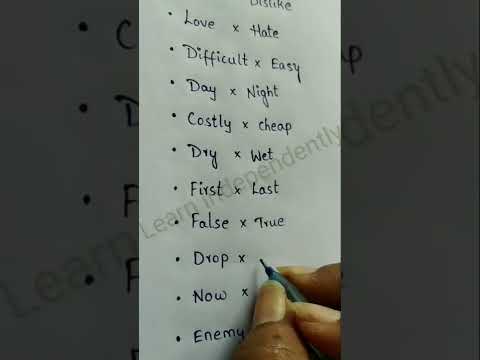 Dislike
• Love × Hate
• Difficult × Easy
• Day × Night
• Costly × cheap
• Dry × Wet
• First × Last
• False × True
• Drop ×
• Now ×
• Enemy
Learn Independently